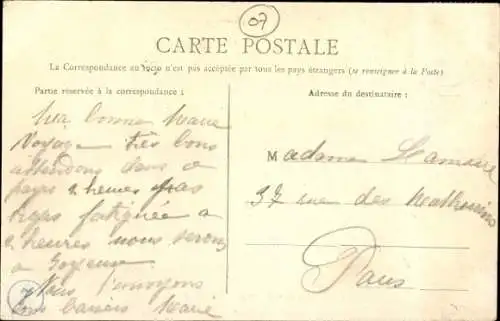 07
CARTE POSTALE
La Correspondance au verso n'est pas acceptée par tous les pays étrangers (se renseigner à la Poste)
Partie réservée à la correspondance :
Adresse du destinataire :
Ma bonne Marie
Voyage très bons
attendons dans ce
pays 2 heures pas
trops fatiguée a
2 heures nous serons
a
Nous t'envoyons
bons baisers Marie
Madame
37 rue des Mathurins
Paris